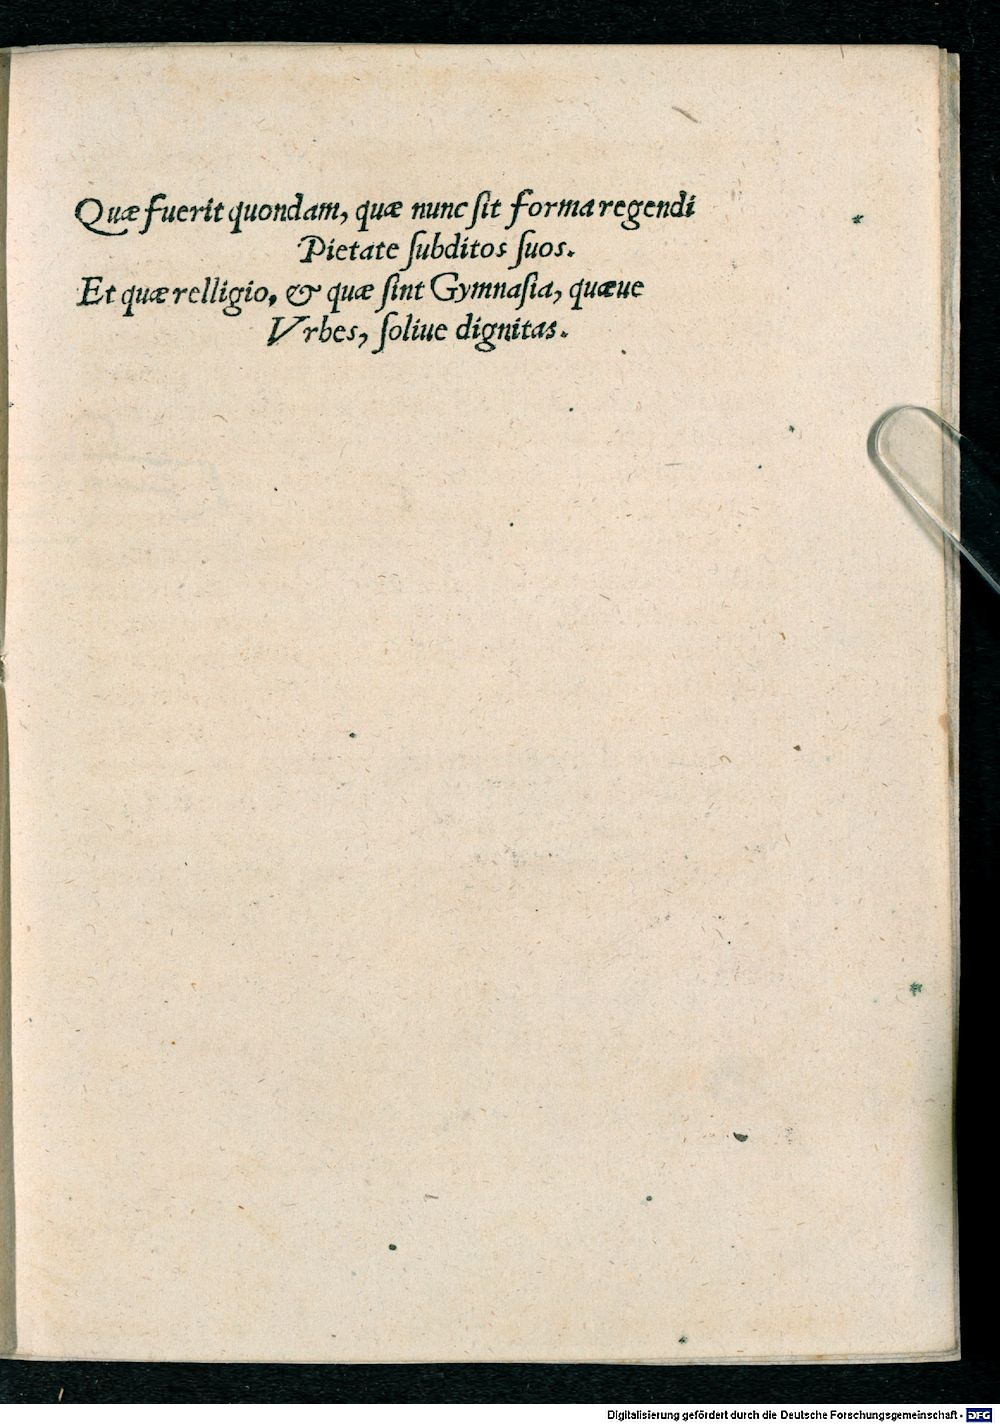 Quæ fuerit quondam, quæ nunc ſit forma regendi
Pietate ſubditos ſuos.
Et quæ relligio, & quæ ſint Gymnaſia, quæue
Vrbes, ſoliue dignitas.
Digitalisierung gefördert durch die Deutsche Forschungsgemeinschaft - DFG